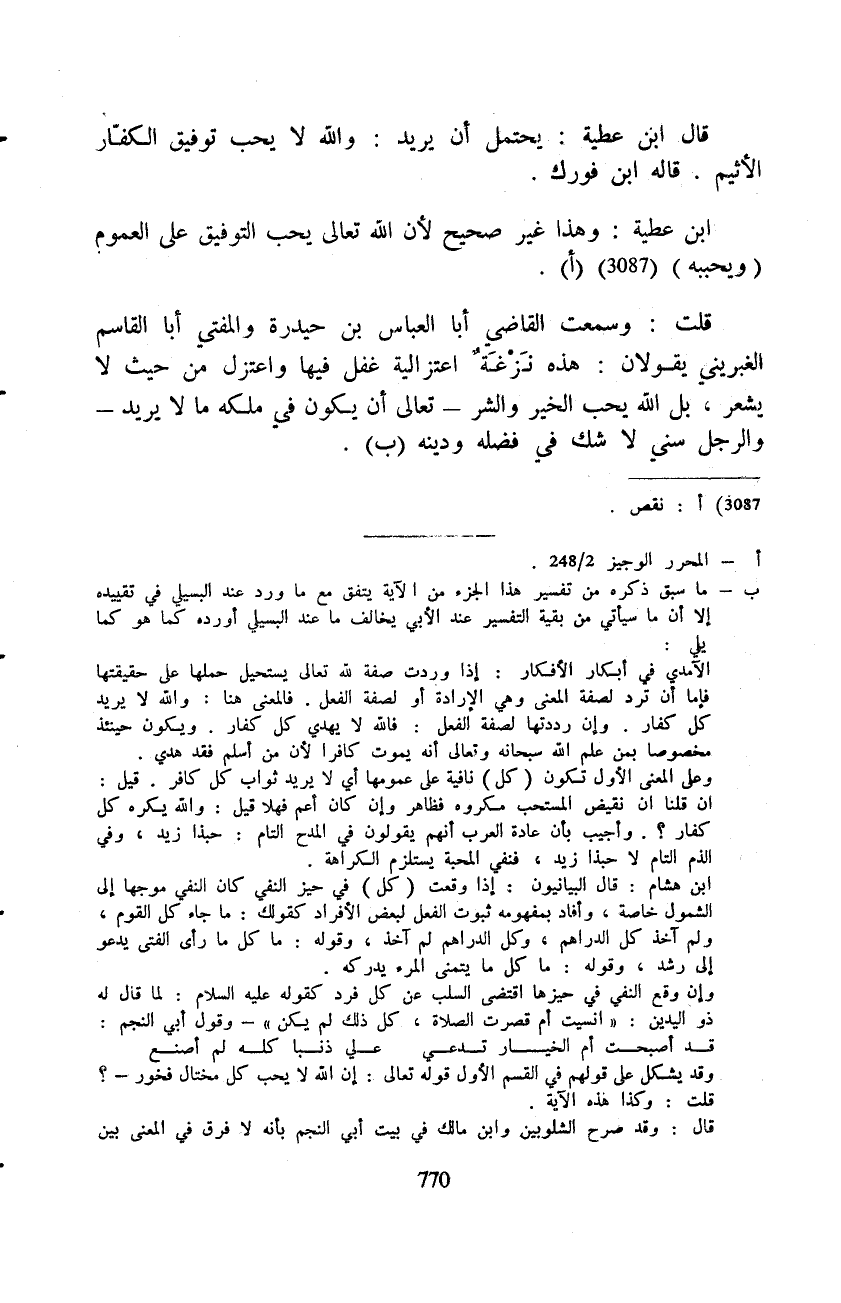 قال ابن عطية : يحتمل أن يريد : والله لا يحب توفيق الكفّار
الأثيم . قاله ابن فورك .
ابن عطية : وهذا غير صحيح لأن الله تعالى يحب التوفيق على العموم
( ويحببه ) (3087) (أ) .
قلت : وسمعت القاضي أبا العباس بن حيدرة والمفتي أبا القاسم
الغبريني يقولان : هذه نَزْغَةٌ اعتزالية غفل فيها واعتزل من حيث لا
يشعر ، بل الله يحب الخير والشر – تعالى أن يكون في ملكه ما لا يريد –
والرجل سني لا شك في فضله ودينه (ب) .
3087) أ : نقص .
أ – المحرر الوجيز 248/2 .
ب – ما سبق ذكره من تفسير هذا الجزء من الآية يتفق مع ما ورد عند البسيلي في تقييده
إلا أن ما سيأتي من بقية التفسير عند الأبي يخالف ما عند البسيلي أورده كما هو كما
يلي :
الآمدي في أبكار الأفكار : إذا وردت صفة لله تعالى يستحيل حملها على حقيقتها
فإما أن تُرد لصفة المعنى وهي الإرادة أو لصفة الفعل . فالمعنى هنا : والله لا يريد
كل كفار . وإن رددتها لصفة الفعل : فالله لا يهدي كل كفار . ويكون حينئذ
مخصوصا بمن علم الله سبحانه وتعالى أنه يموت كافرا لأن من أسلم فقد هدي .
وعلى المعنى الأول تكون ( كل ) نافية على عمومها أي لا يريد ثواب كل كافر . قيل :
ان قلنا ان نقيض المستحب مكروه فظاهر وإن كان أعم فهلا قيل : والله يكره كل
كفار ؟ . وأجيب بأن عادة العرب أنهم يقولون في المدح التام : حبذا زيد ، وفي
الذم التام لا حبذا زيد ، فنفي المحبة يستلزم الكراهة .
ابن هشام : قال البيانيون : إذا وقعت ( كل ) في حيز النفي كان النفي موجها إلى
الشمول خاصة ، وأفاد بمفهومه ثبوت الفعل لبعض الأفراد كقولك : ما جاء كل القوم ،
ولم آخذ كل الدراهم ، وكل الدراهم لم آخذ ، وقوله : ما كل ما رأى الفتى يدعو
إلى رشد ، وقوله : ما كل ما يتمنى المرء يدركه .
وإن وقع النفي في حيزها اقتضى السلب عن كل فرد كقوله عليه السلام : لما قال له
ذو اليدين : « انسيت أم قصرت الصلاة ، كل ذلك لم يكن » – وقول أبي النجم :
قد أصبحت أم الخيار تدعي علي ذنبا كله لم أصنع
وقد يشكل على قولهم في القسم الأول قوله تعالى : إن الله لا يحب كل مختال فخور – ؟
قلت : وكذا هذه الآية .
قال : وقد صرح الشلوبين وابن مالك في بيت أبي النجم بأنه لا فرق في المعنى بين
770